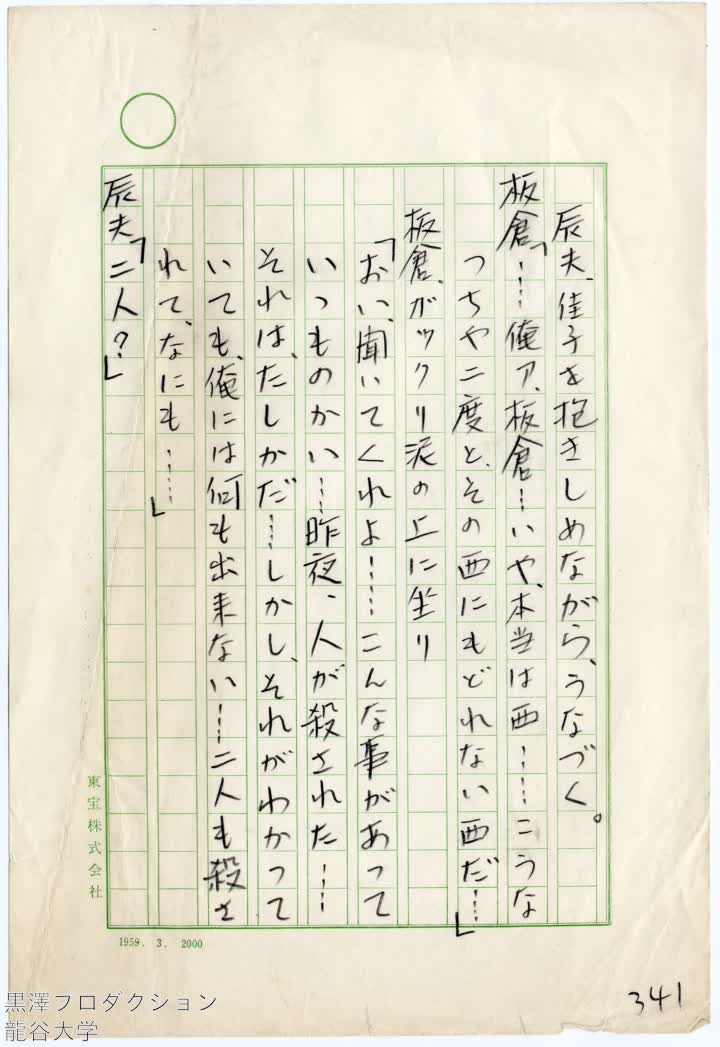 辰夫、佳子を抱きしめながら、うなづく。
板倉「……俺ア、板倉…いや、本当は西……こうな
つちや二度と、その西にもどれない西だ…」
板倉、ガックリ泥の上に坐り
「おい、聞いてくれよ……こんな事があって
いつものかい…昨夜、人が殺された……
それは、たしかだ…しかし、それがわかって
いても、俺には何も出来ない…二人も殺さ
れて、なにも……」
辰夫「二人?」
東宝株式会社
1959. 3. 2000
341
黒澤プロダクション
龍谷大学